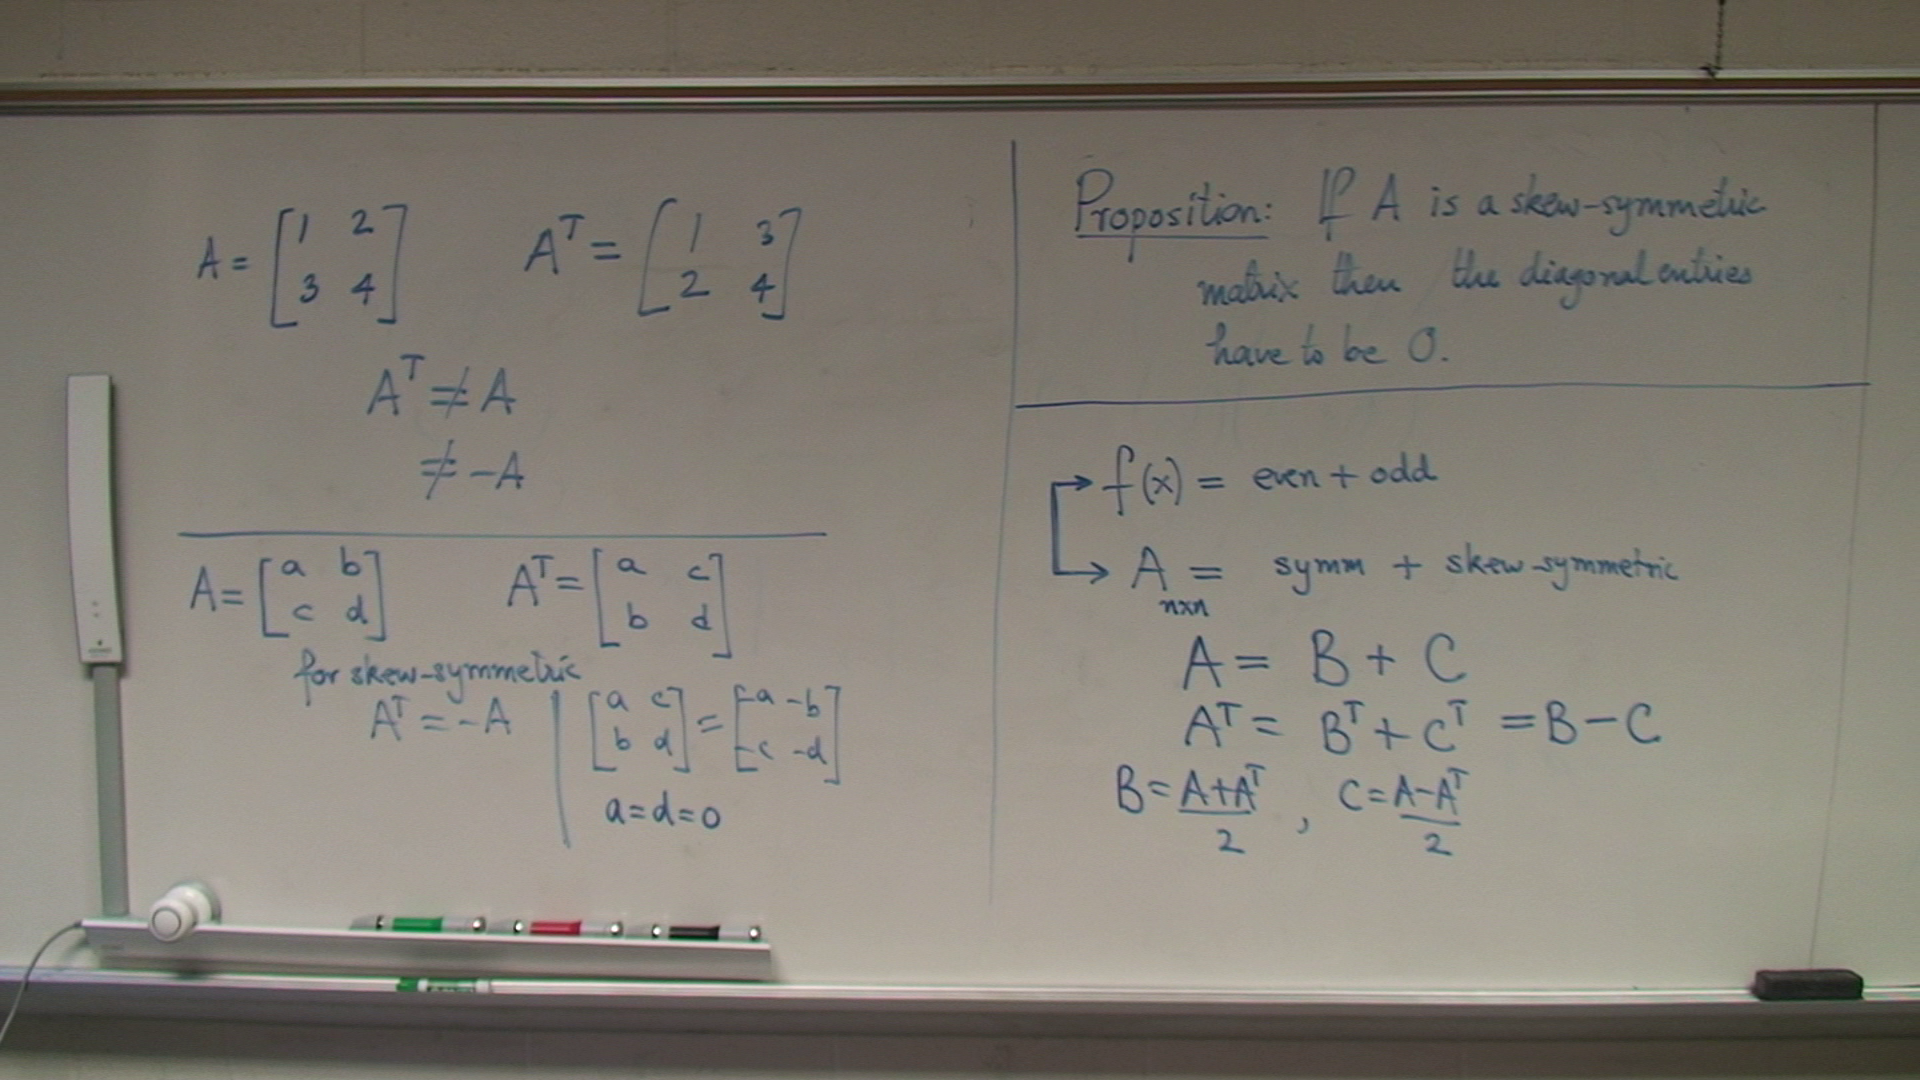 A = [1 2 3 4] A^T = [1 3 2 4]
A^T ≠ A
≠ -A
A = [a b c d] A^T = [a c b d]
for skew-symmetric
A^T = -A | [a c b d] = [-a -b -c -d]
a = d = 0
Proposition: If A is a skew-symmetric
matrix then the diagonal entries
have to be 0.
f(x) = even + odd
A = symm + skew-symmetric
nxn
A = B + C
A^T = B^T + C^T = B - C
B = A+A^T / 2 , C = A-A^T / 2